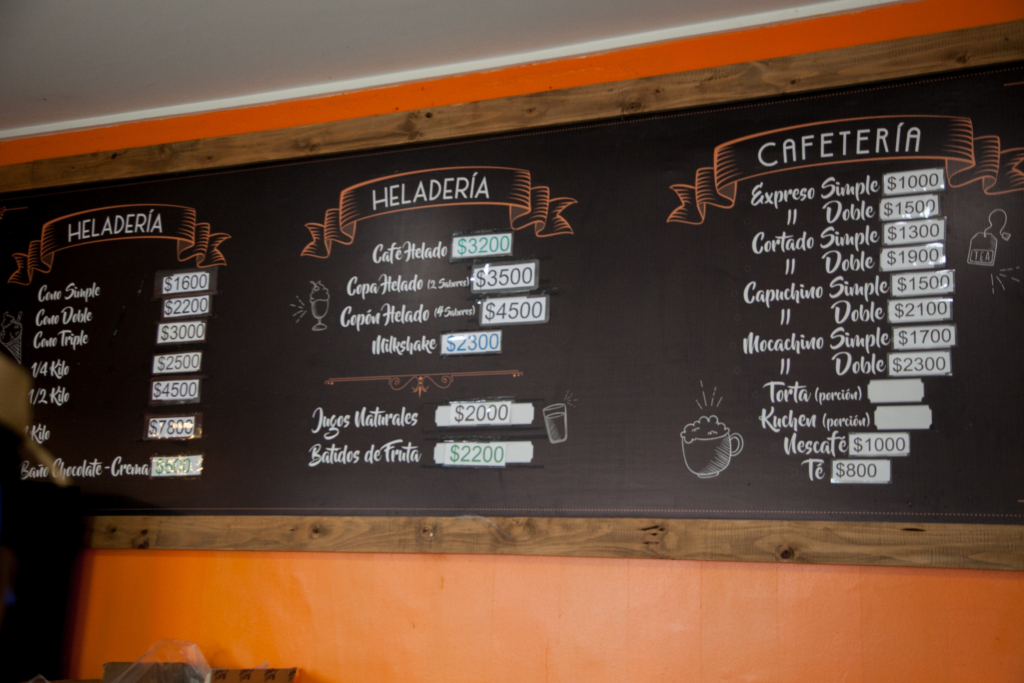 HELADERÍA
Cono Simple $1600
Cono Doble $2200
Cono Triple $3000
1/4 Kilo $2500
1/2 Kilo $4500
Kilo $7800
Baño Chocolate - Crema
HELADERÍA
Café Helado $3200
Copa Helado (2 Sabores) $3500
Copón Helado (4 Sabores) $4500
Milkshake $2300
Jugos Naturales $2000
Batidos de Fruta $2200
CAFETERÍA
Expreso Simple $1000
" Doble $1500
Cortado Simple $1300
" Doble $1900
Capuchino Simple $1500
" Doble $2100
Mocachino Simple $1700
" Doble $2300
Torta (porción)
Kuchen (porción)
Nescafé $1000
Té $800
TEA